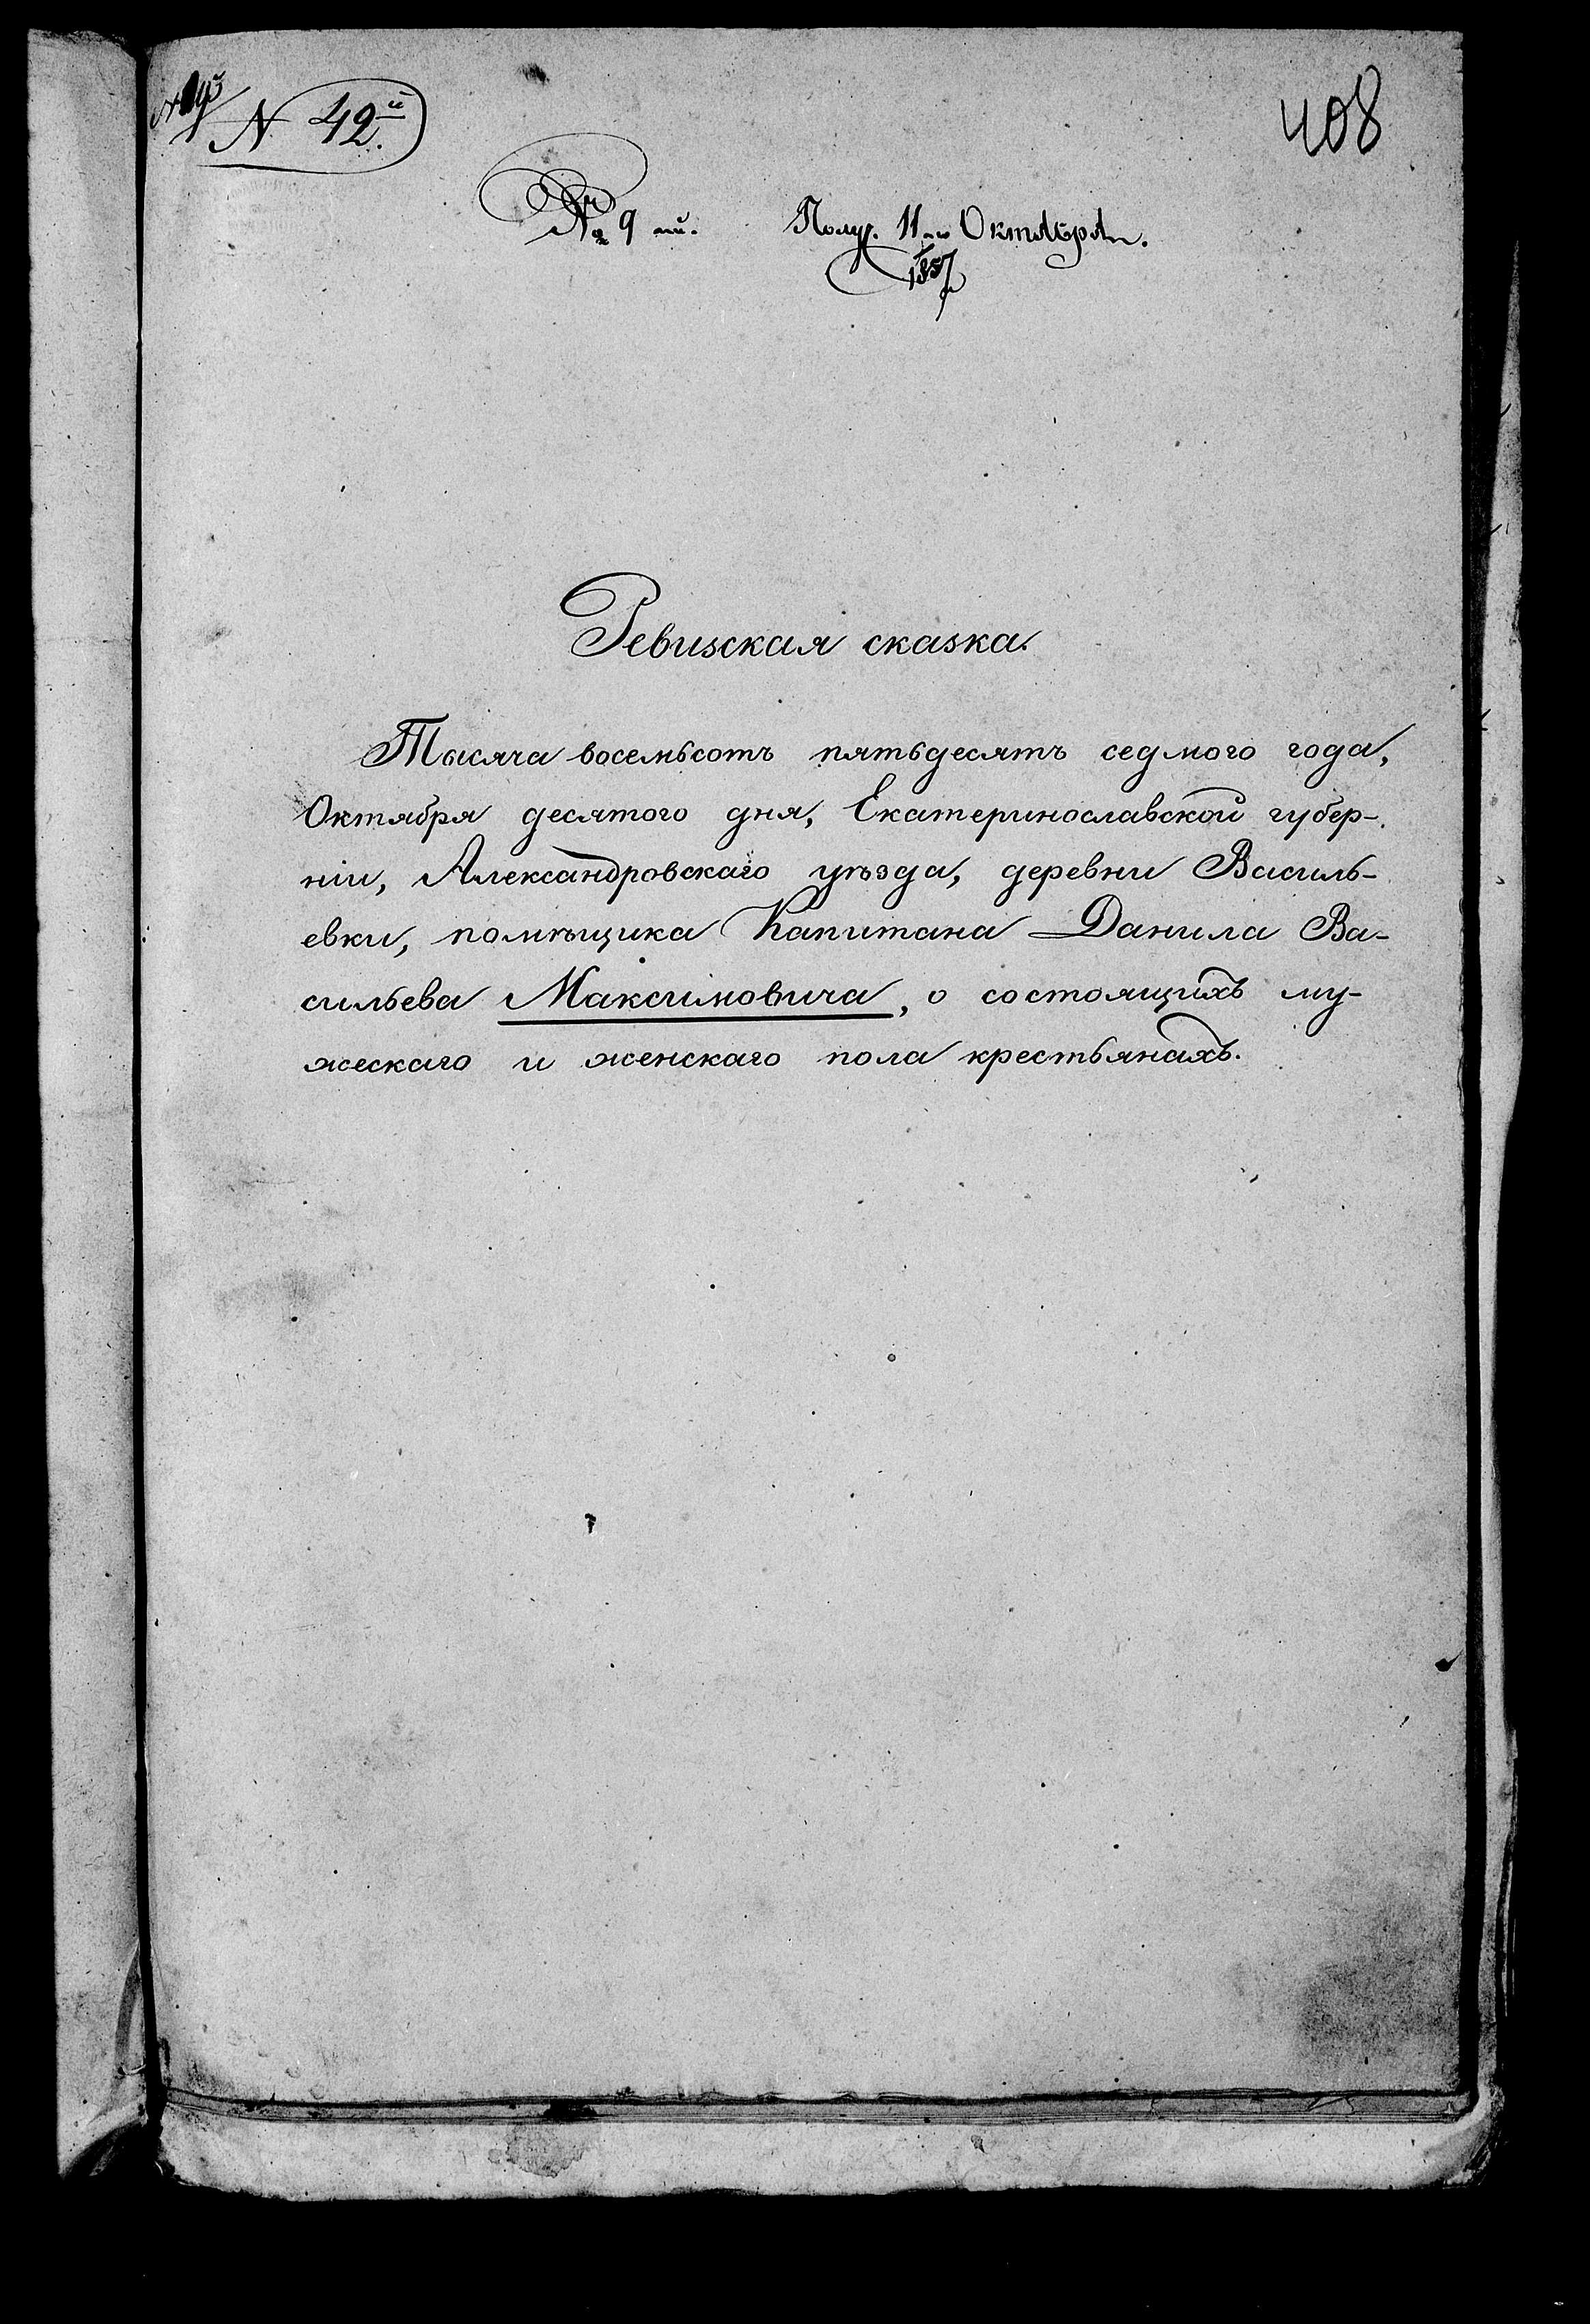 N 42й.
408
№ 9 ый. Получ. 11го Октября.
1857
Ревизская сказка.
Тысяча восемьсотъ пятьдесятъ седмого года,
Октября десятого дня, Екатеринославской губер-
ніи, Александровскаго уѣзда, деревни Василь-
евки, помѣщика Капитана Данила Ва-
сильева Максимовича, о состоящихъ му-
жескаго и женскаго пола крестьянахъ.